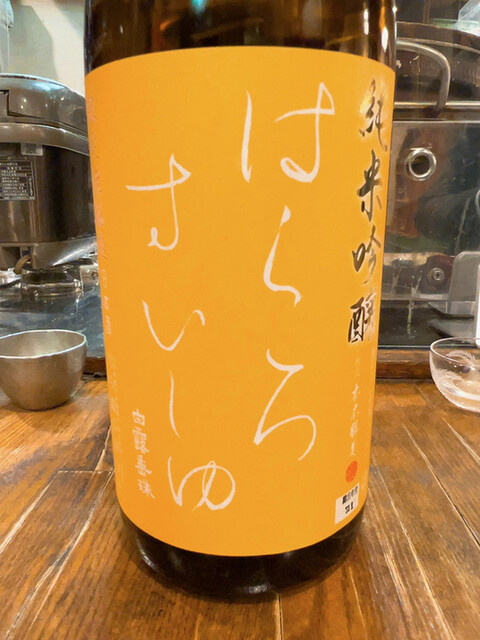 純米吟醸
はくろ
すいしゅ
白露垂珠